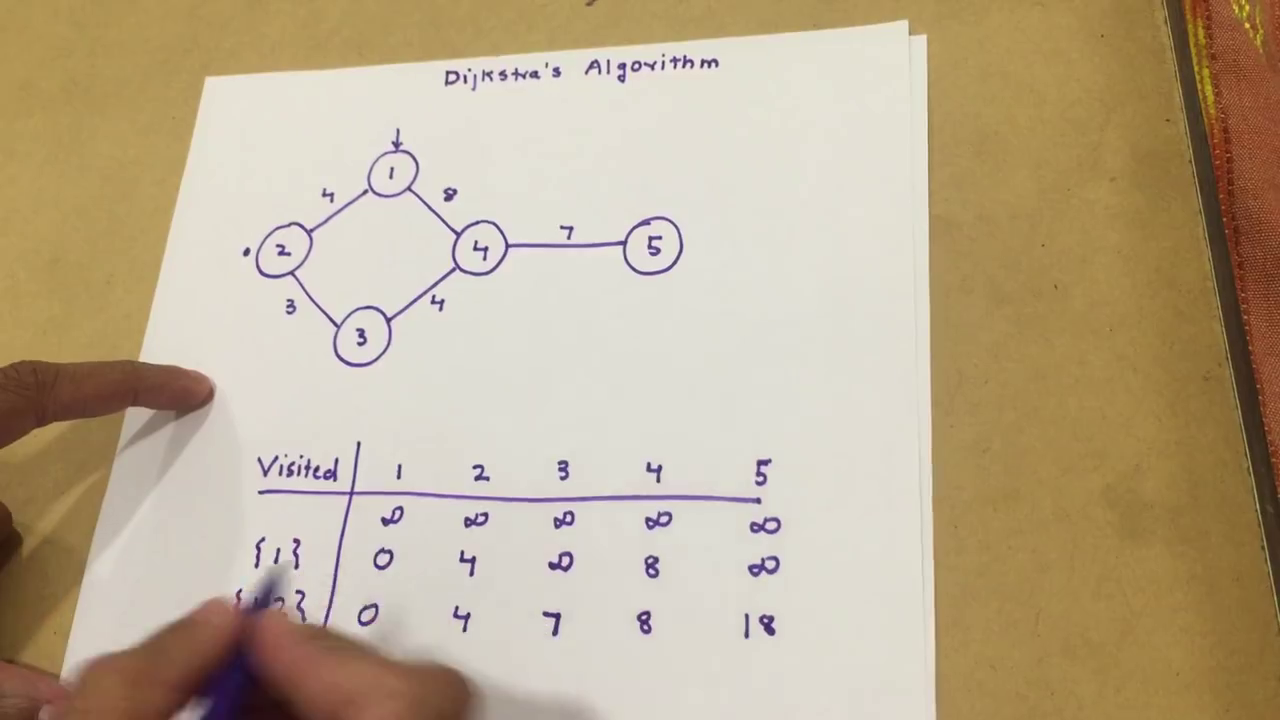 Dijkstra's Algorithm
1
4 8
2 4 7 5
3 4
3
Visited 1 2 3 4 5
∞ ∞ ∞ ∞ ∞
{1} 0 4 ∞ 8 ∞
0 4 7 8 18